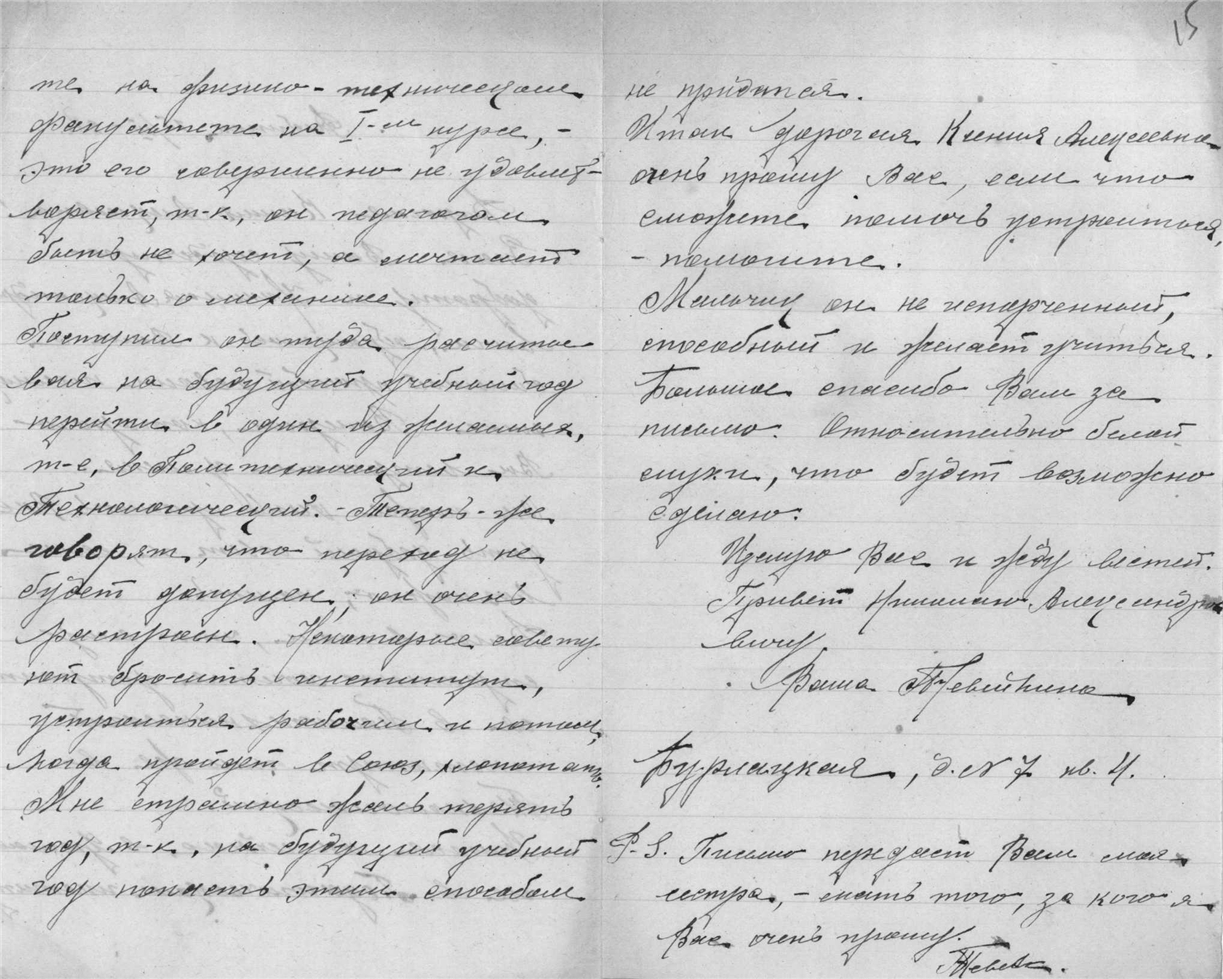 те на физико-техническом
факультете на I-ом курсе, -
это его совершенно не удовлет-
воряет, т-к, он педагогом
быть не хочет, а мечтает
только о механике.
Поступил он туда расчиты-
вая на будущий учебный год
перейти в один из желаемых,
т-е, в Политехнический и
Технологический. - Теперь-же
говорят, что переход не
будет допущен; он очень
растроен. Некоторые совету
ют бросить институт,
устроиться рабочим и потом,
когда пройдет в Союз, хлопотать.
Мне страшно жаль терять
год, т-к, на будущий учебный
год попасть этим способом
15
не придется.
Итак дорогая Ксения Алексеевна
очень прошу Вас, если что
сможете помочь устроиться,
- помогите.
Мальчик он не испорченный,
способный и желает учиться.
Большое спасибо Вам за
письмо. Относительно белой
муки, что будет возможно
сделаю.
Целую Вас и жду вестей.
Привет Николаю Александро
вичу
Ваша
Бурлацкая, д. N 7 кв. 4.
P-S. Письмо передаст Вам моя
сестра, - мать того, за кого я
Вас очень прошу.